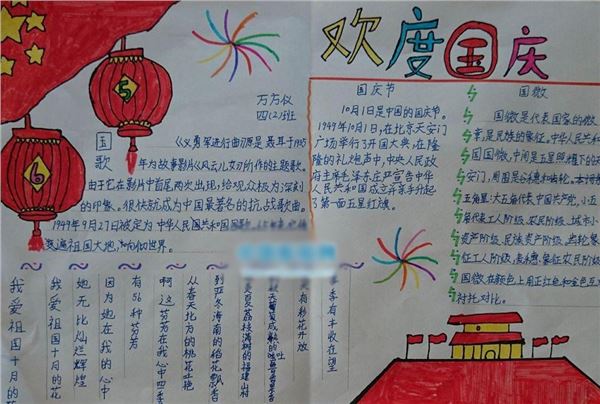 欢度国庆
万方仪
四(2)班
国歌
《义勇军进行曲》原是聂耳于1935
年为故事影片《风云儿女》所作的主题歌。
由于它在影片中首尾两次出现,给观众极为深刻
的印象。很快就成为中国最著名的抗战歌曲。
1949年9月27日被定为中华人民国共和国国歌
遍祖国大地,响彻世界。
国庆节
10月1日是中国的国庆节。
1949年10月1日,在北京天安门
广场举行3开国大典,在隆
隆的礼炮声中,中央人民政
府主席毛泽东庄严宣告中华
人民共和国成立并亲手升起
了第一面五星红旗。
国徽
国徽是代表国家的徽
章是民族的象征。中华人民共和
国国徽,中间是五星照耀下的天
安门,周围是谷穗和齿轮。
五角星:大五角代表中国共产党,小五
角代表工人阶级、农民阶级、城市小
资产阶级、民族资产阶级。齿轮象
征工人阶级,麦穗象征农民阶级
国徽在颜色上用正红和金色互
衬托对比。
丰有丰收在望
天有秋花开放
夏夏荔枝满树的福建山村
到亚冬海南的稻花飘香
从春天北方的桃花吐艳
啊这芬芳在我心中四季
有56种芬芳
因为她在我的心中
她无比灿烂辉煌
我爱祖国十月的花
我爱祖国十月的花
5
6